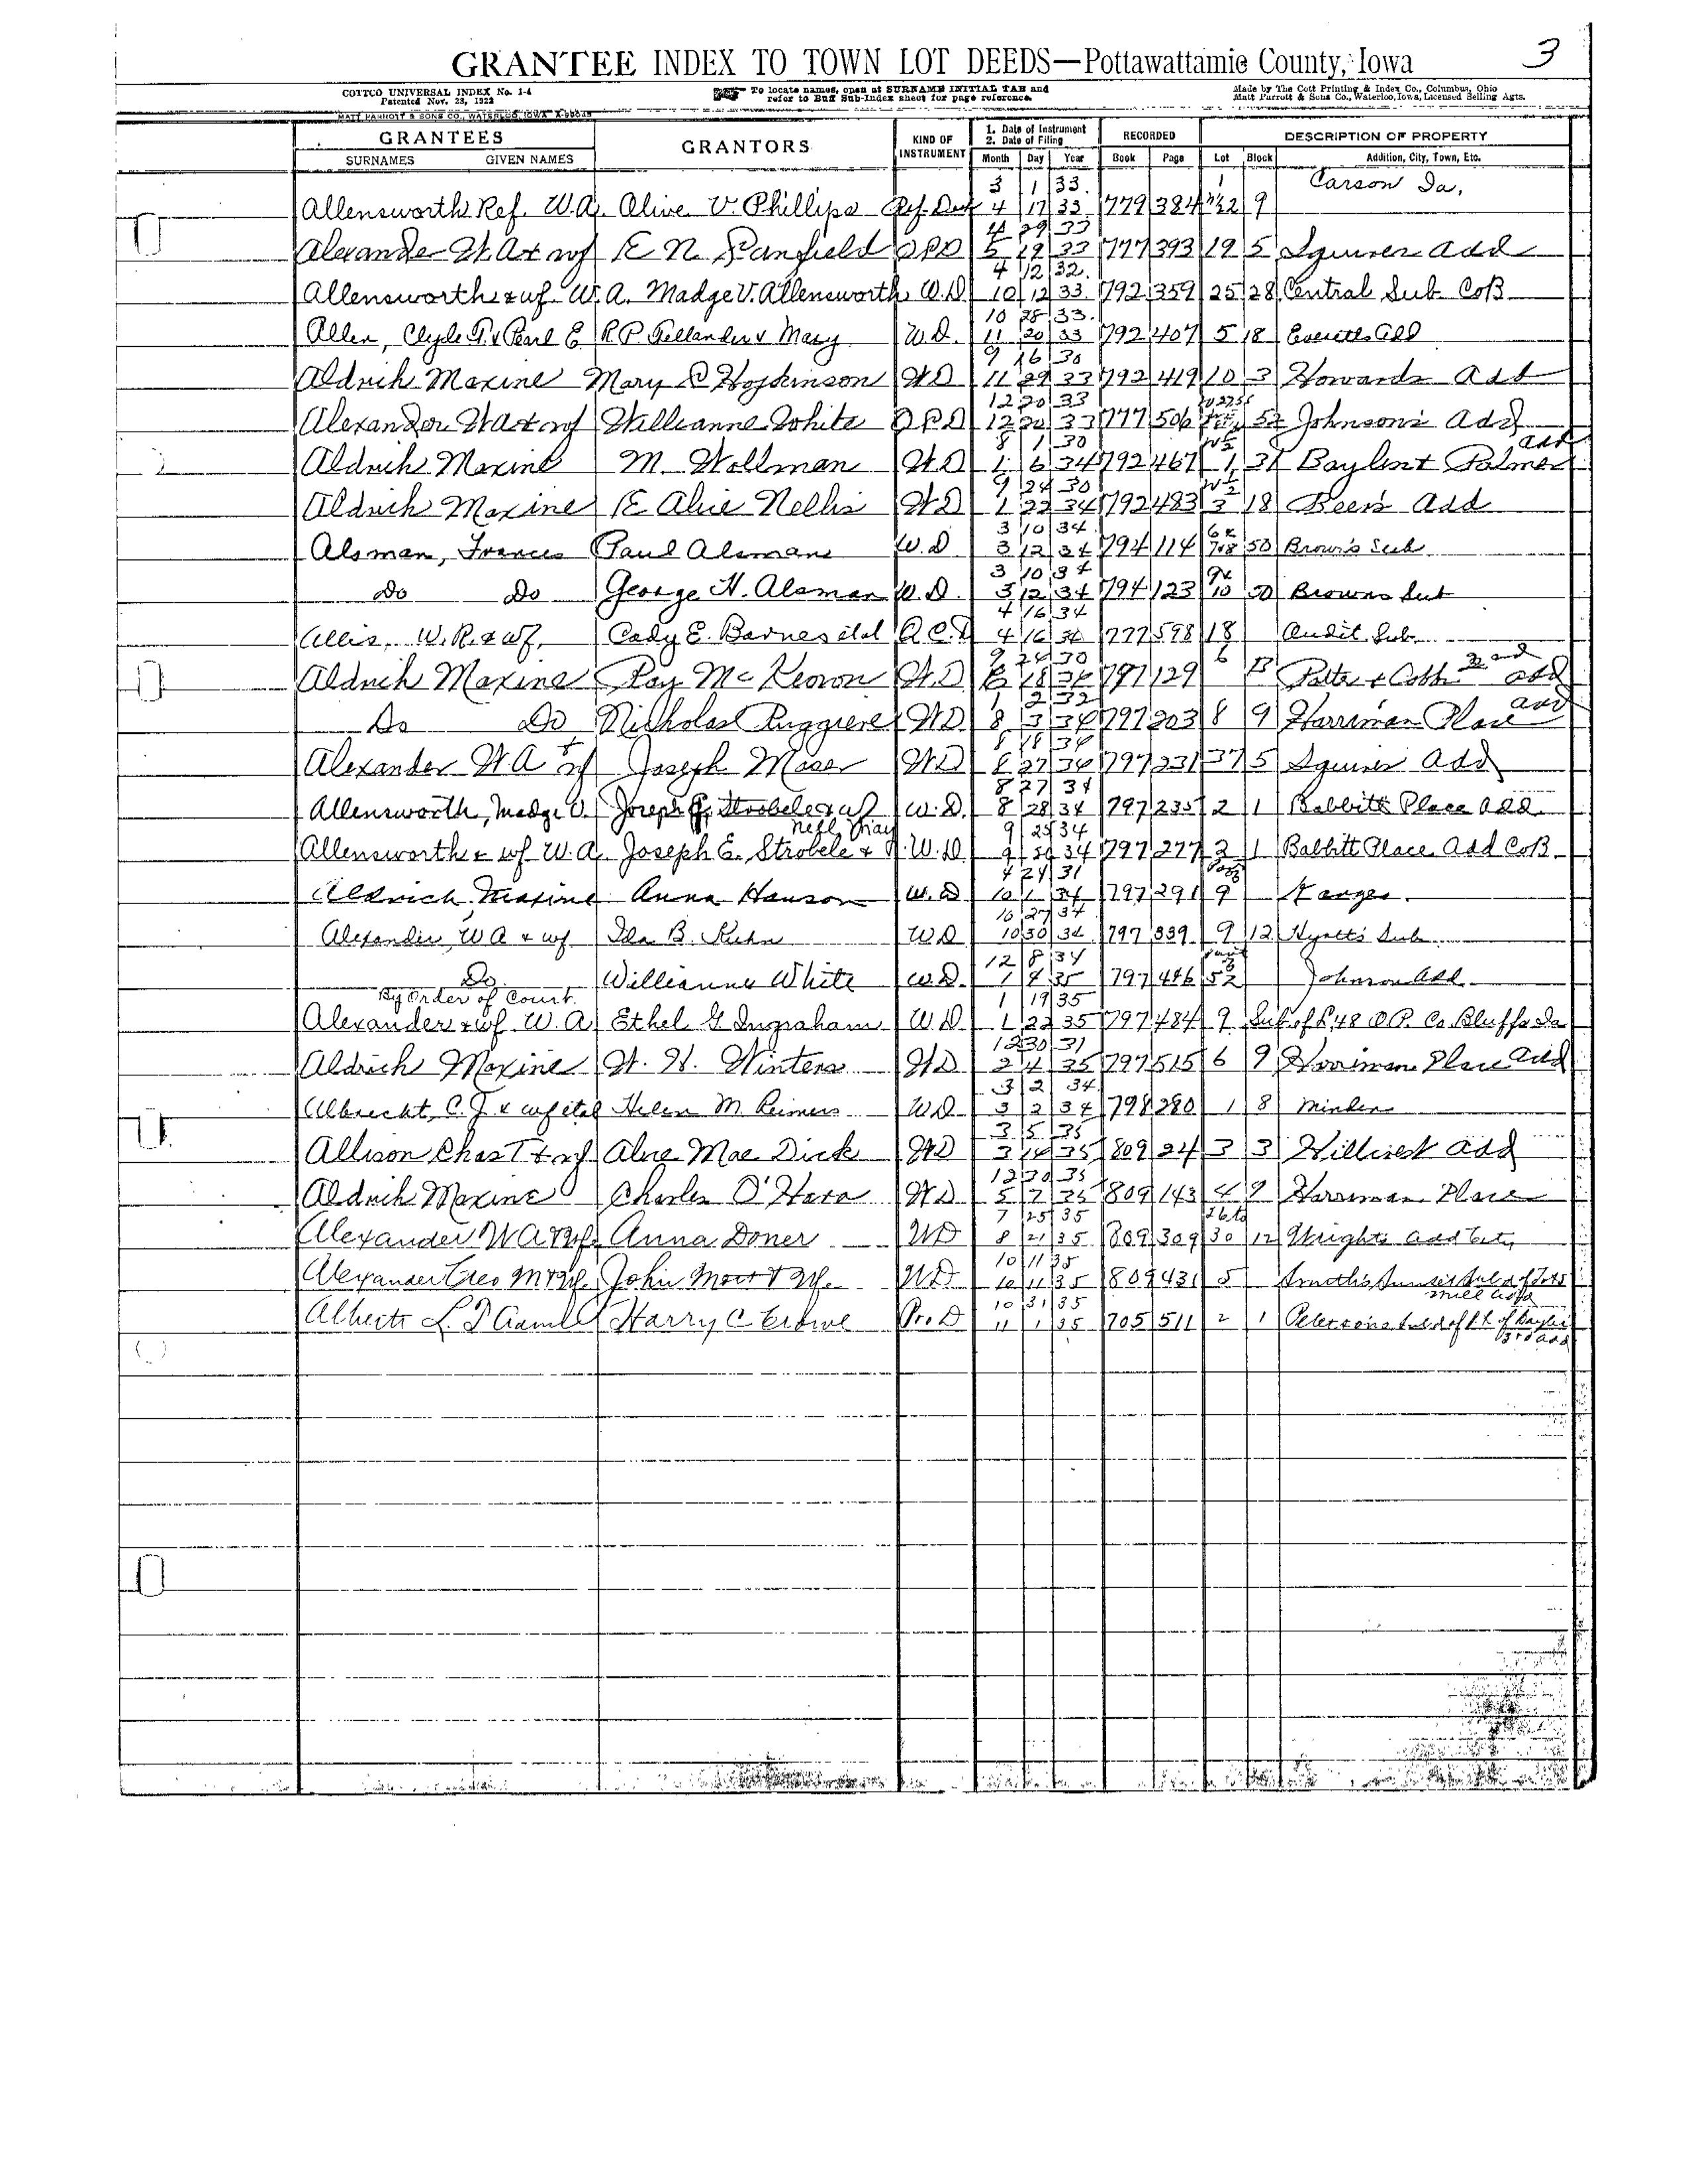 3
GRANTEE INDEX TO TOWN LOT DEEDS—Pottawattamie County, Iowa
COTTCO UNIVERSAL INDEX No. 1-4
Patented Nov. 28, 1922
To locate names, open at SURNAME INITIAL TAB and
refer to Buff Sub-Index sheet for page reference.
Made by The Cott Printing & Index Co., Columbus, Ohio
Matt Parrott & Sons Co., Waterloo, Iowa, Licensed Selling Agts.
MATT PARROTT & SONS CO., WATERLOO, IOWA
GRANTEES GRANTORS KIND OF INSTRUMENT 1. Date of Instrument 2. Date of Filing RECORDED DESCRIPTION OF PROPERTY
SURNAMES GIVEN NAMES Month Day Year Book Page Lot Block Addition, City, Town, Etc.
3 1 33 1 Carson Ia.
Allensworth Ref. W.A. Olive V. Phillips Ref. Deed 4 17 33 779 384 9
4 29 33
Alexander W A & wf E N Banfield QCD 5 19 33 777 393 19 5 Squires Add
4 12 32
Allensworth & wf W.A. Madge V. Allensworth W.D. 10 12 33 792 359 25 28 Central Sub CoB
10 28 33
Allen, Clyde T. & Pearl E R P Fellander & Mary W.D. 11 20 33 792 407 5 18 Everetts Add
9 16 30
Aldrich Maxine Mary C Hopkinson WD 11 29 33 792 419 10 3 Howards Add
12 20 33
Alexander W A & wf Willianne White 12 20 33 777 506 52 Johnson's Add
8 1 30 W½
Aldrich Maxine M. Wollman WD 1 6 34 792 467 1 31 Bayliss & Palmer Add
9 24 30 W½
Aldrich Maxine E Alice Nellis WD 1 22 34 792 483 3 18 Beers Add
3 10 34 6 &
Alsman, Frances Paul Alsman W.D 3 12 34 794 114 7&8 50 Brown's Sub
3 10 34 9 &
Do Do George H. Alsman W.D. 3 12 34 794 123 10 50 Browns Sub
4 16 34
Allis, W.R. & wf. Cady E. Barnes etal Q.C.D 4 16 34 777 598 18 Audit. Sub.
9 24 30 6
Aldrich Maxine Ray McKeown W.D 18 34 797 129 13 Potter & Cobbs 2nd add
1 2 32
Do Do Nicholas Ruggiere WD 8 3 34 797 203 8 9 Harriman Place add
8 18 34
Alexander W A & wf Joseph Maser WD 8 27 34 797 231 37 5 Squires Add
8 27 34
Allensworth, Madge V. Joseph Strobele & wf W.D. 8 28 34 797 235 2 1 Babbitt Place Add.
Nell May 9 25 34
Allensworth & wf W.A. Joseph E. Strobele & W.D 9 34 797 277 2 1 Babbitt Place Add CoB
4 24 31
Aldrich Maxine Anna Hanson W.D 10 1 34 797 291 9
10 27 34
Alexander, W A & wf Ida B. Kuhn WD 10 30 34 797 339 9 12 Hyatt's Sub
12 8 34
Do Willianna White W.D. 1 4 35 797 446 52 Johnson Add
By Order of Court. 1 19 35
Alexander & wf W. A Ethel G Ingraham WD 1 22 35 797 484 9 Sub of L 48 O.P. Co. Bluffs Ia
12 30 31
Aldrich Maxine W. H. Winters WD 2 4 35 797 515 6 9 Harriman Place Add
3 2 34
Albrecht, C.J. & wf etal Helen M. Reimers WD 3 2 34 798 280 1 8 Minden
3 5 35
Allison Chas T & wf Alice Mae Dick WD 3 14 35 809 24 3 3 Hillcrest Add
12 30 35
Aldrich Maxine Charles O'Hara WD 5 7 35 809 143 4 9 Harriman Place
7 25 35 26 to
Alexander W A & Wf. Anna Doner WD 8 21 35 809 309 30 12 Wrights Add
10 11 35
Alexander Geo M & Wf. John Mott & Wf. WD 10 11 35 809 431 5
10 31 35
Harry C Crowe Pro. D 11 1 35 705 511 2 1 Petersons Subd of Pt of Bayliss 3rd add